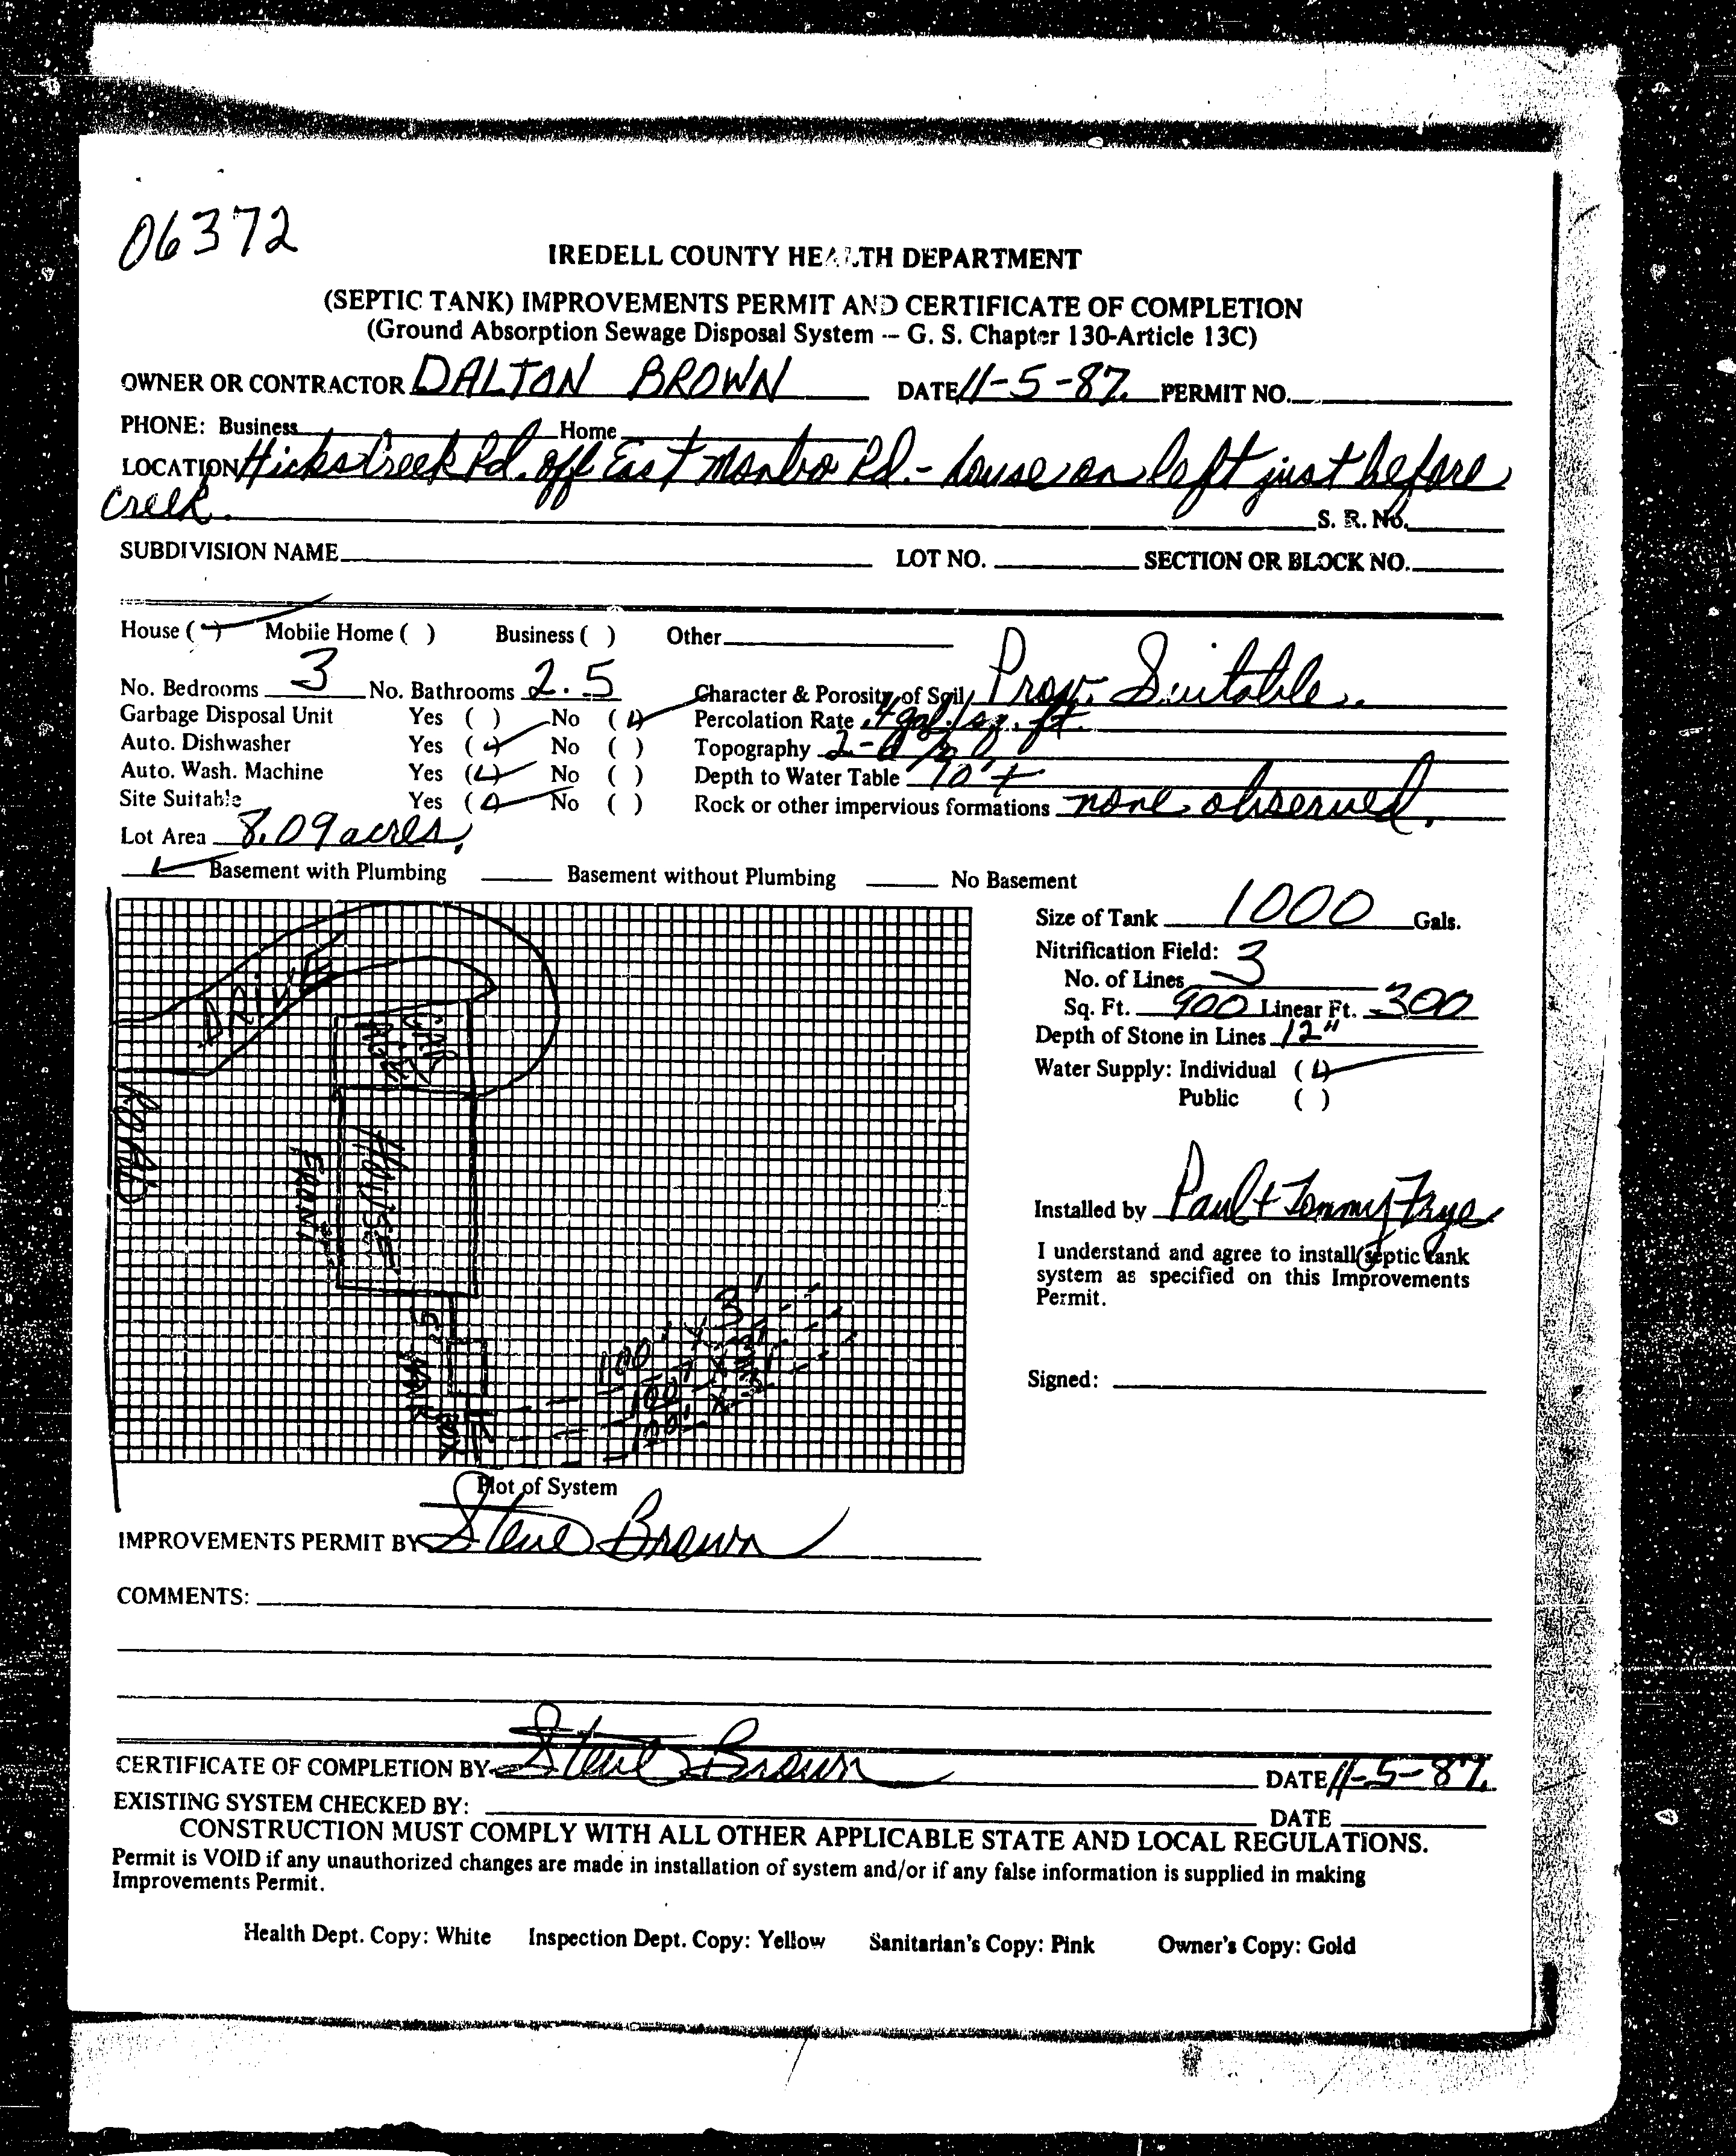 06372
IREDELL COUNTY HEALTH DEPARTMENT
(SEPTIC TANK) IMPROVEMENTS PERMIT AND CERTIFICATE OF COMPLETION
(Ground Absorption Sewage Disposal System -- G. S. Chapter 130-Article 13C)
OWNER OR CONTRACTOR DALTON BROWN DATE 11-5-87. PERMIT NO.
PHONE: Business Home
LOCATION Hicks Creek Rd. off East Monbo Rd. - house on left just before
creek. S. R. No.
SUBDIVISION NAME LOT NO. SECTION OR BLOCK NO.
House ( ) Mobile Home ( ) Business ( ) Other
No. Bedrooms 3 No. Bathrooms 2.5 Character & Porosity of Soil Prov. Suitable.
Garbage Disposal Unit Yes ( ) No ( ) Percolation Rate .4 gal./sq. ft.
Auto. Dishwasher Yes ( ) No ( ) Topography
Auto. Wash. Machine Yes ( ) No ( ) Depth to Water Table 10'+
Site Suitable Yes ( ) No ( ) Rock or other impervious formations none observed.
Lot Area 8.09 acres.
Basement with Plumbing Basement without Plumbing No Basement
Size of Tank 1000 Gals.
Nitrification Field:
No. of Lines 3
Sq. Ft. 900 Linear Ft. 300
Depth of Stone in Lines 12"
Water Supply: Individual ( )
Public ( )
DRIVE
ROAD
FRONT
HOUSE
5'
TANK
BOX
100'
100'
100'
Installed by Paul & Tommy Frye
I understand and agree to install septic tank
system as specified on this Improvements
Permit.
Signed:
Plot of System
IMPROVEMENTS PERMIT BY Steve Brown
COMMENTS:
CERTIFICATE OF COMPLETION BY Steve Brown DATE 11-5-87.
EXISTING SYSTEM CHECKED BY: DATE
CONSTRUCTION MUST COMPLY WITH ALL OTHER APPLICABLE STATE AND LOCAL REGULATIONS.
Permit is VOID if any unauthorized changes are made in installation of system and/or if any false information is supplied in making
Improvements Permit.
Health Dept. Copy: White Inspection Dept. Copy: Yellow Sanitarian's Copy: Pink Owner's Copy: Gold